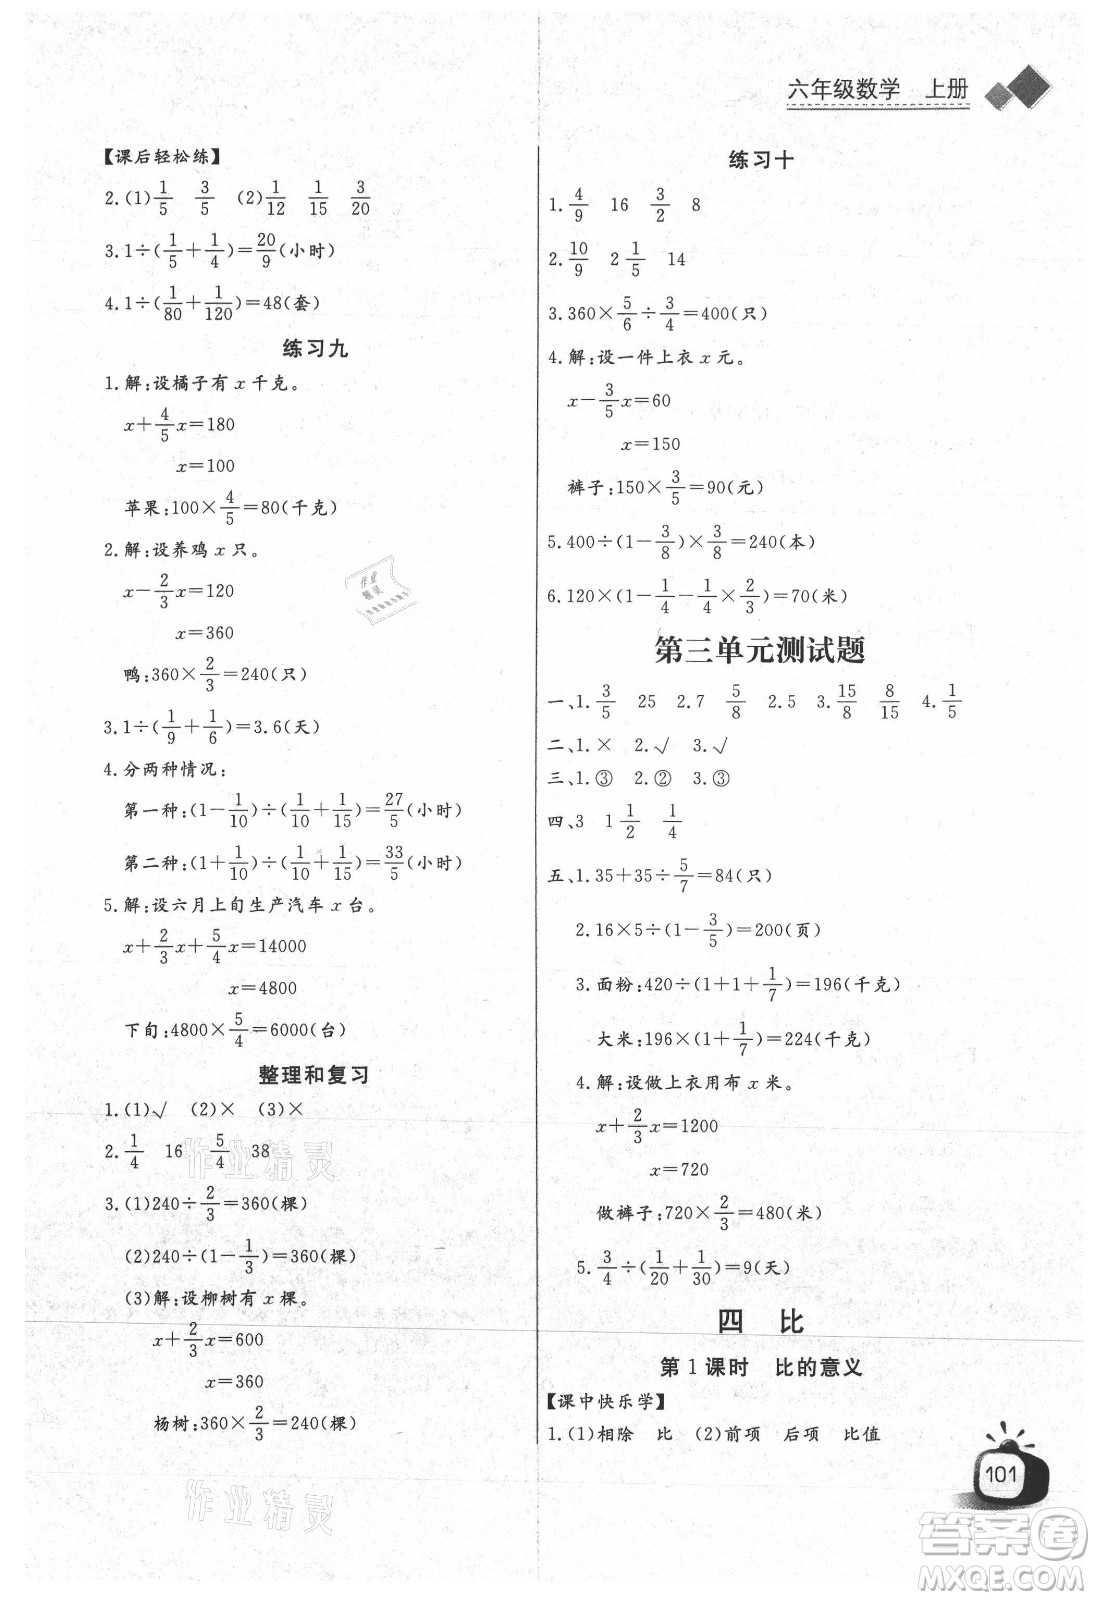 六年级数学 上册
【课后轻松练】
2.(1)1/5 3/5 (2)1/12 1/15 3/20
3.1÷(1/5+1/4)=20/9(小时)
4.1÷(1/80+1/120)=48(套)
练习九
1.解:设橘子有x千克。
x+4/5x=180
x=100
苹果:100×4/5=80(千克)
2.解:设养鸡x只。
x-2/3x=120
x=360
鸭:360×2/3=240(只)
3.1÷(1/9+1/6)=3.6(天)
4.分两种情况:
第一种:(1-1/10)÷(1/10+1/15)=27/5(小时)
第二种:(1+1/10)÷(1/10+1/15)=33/5(小时)
5.解:设六月上旬生产汽车x台。
x+2/3x+5/4x=14000
x=4800
下旬:4800×5/4=6000(台)
整理和复习
1.(1)√ (2)× (3)×
2.1/4 16 5/4 38
3.(1)240÷2/3=360(棵)
(2)240÷(1-1/3)=360(棵)
(3)解:设柳树有x棵。
x+2/3x=600
x=360
杨树:360×2/3=240(棵)
练习十
1.4/9 16 3/2 8
2.10/9 2 1/5 14
3.360×5/6÷3/4=400(只)
4.解:设一件上衣x元。
x-3/5x=60
x=150
裤子:150×3/5=90(元)
5.400÷(1-3/8)×3/8=240(本)
6.120×(1-1/4-1/4×2/3)=70(米)
第三单元测试题
一、1.3/5 25 2.7 5/8 2.5 3.15/8 8/15 4.1/5
二、1.× 2.√ 3.√
三、1.③ 2.② 3.③
四、3 1 1/2 1/4
五、1.35+35÷5/7=84(只)
2.16×5÷(1-3/5)=200(页)
3.面粉:420÷(1+1+1/7)=196(千克)
大米:196×(1+1/7)=224(千克)
4.解:设做上衣用布x米。
x+2/3x=1200
x=720
做裤子:720×2/3=480(米)
5.3/4÷(1/20+1/30)=9(天)
四 比
第1课时 比的意义
【课中快乐学】
1.(1)相除 比 (2)前项 后项 比值
101
作业精灵
作业精灵
作业精灵
答案卷
MXQE.COM